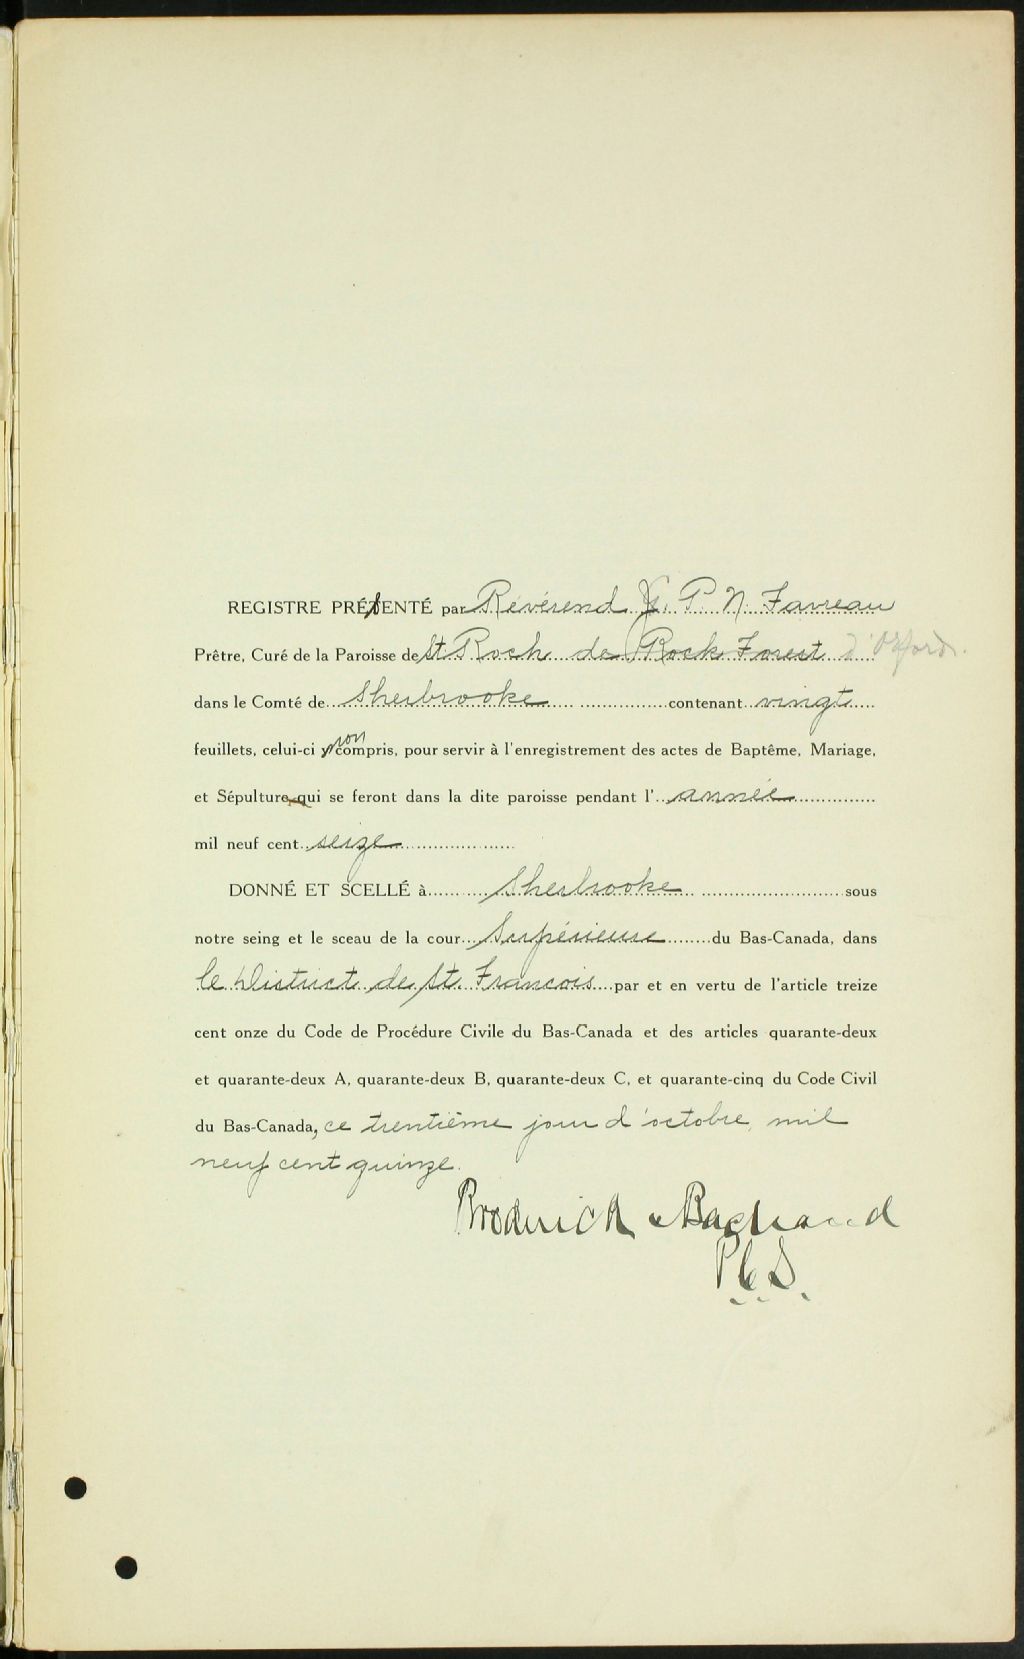 REGISTRE PRÉSENTÉ par Révérend J. P. N. Favreau
Prêtre, Curé de la Paroisse de St Roch de Rock Forest d'Orford.
dans le Comté de Sherbrooke contenant vingt
feuillets, celui-ci non compris, pour servir à l'enregistrement des actes de Baptême, Mariage,
et Sépulture qui se feront dans la dite paroisse pendant l'année
mil neuf cent seize
DONNÉ ET SCELLÉ à Sherbrooke sous
notre seing et le sceau de la cour Supérieure du Bas-Canada, dans
le District de St. Francois par et en vertu de l'article treize
cent onze du Code de Procédure Civile du Bas-Canada et des articles quarante-deux
et quarante-deux A, quarante-deux B, quarante-deux C, et quarante-cinq du Code Civil
du Bas-Canada, ce trentième jour d'octobre, mil
neuf cent quinze.
Broderick & Bachand
P C S.